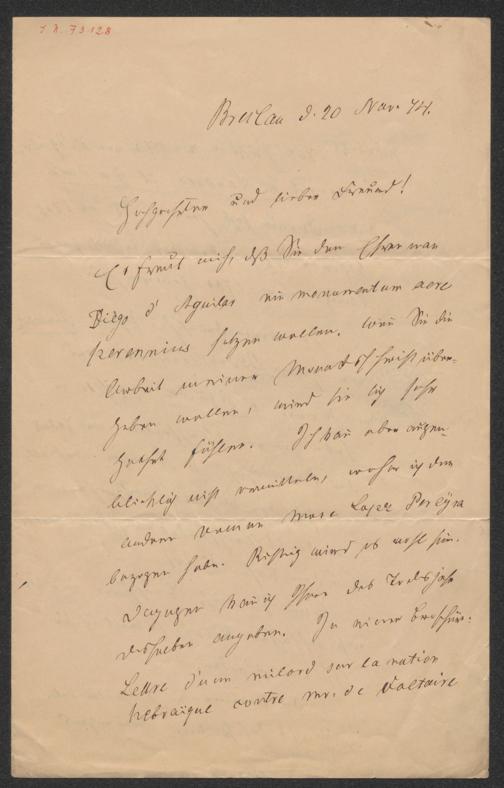 I. N. 79.128
Breslau d. 20 Nov. 74.
Hochgeehrter und lieber Freund!
Es freut mich, daß Sie dem Ehrenman
Diego d' Aguilar ein monumentum aere
perennius setzen wollen. Wenn Sie die
Arbeit meiner Monatsschrift über-
geben wollen, wird sie sich sehr
geehrt fühlen. Ich kann aber augen-
blicklich nicht vermitteln, woher ich den
andern Namen Mose Lopez Pereyra
bezogen habe. Richtig wird es wohl sein.
Dagegen kann ich Ihnen das Todesjahr
desselben angeben. In einer Broschüre:
Lettre d'un milord sur la nation
hebraïque contre mr. de Voltaire